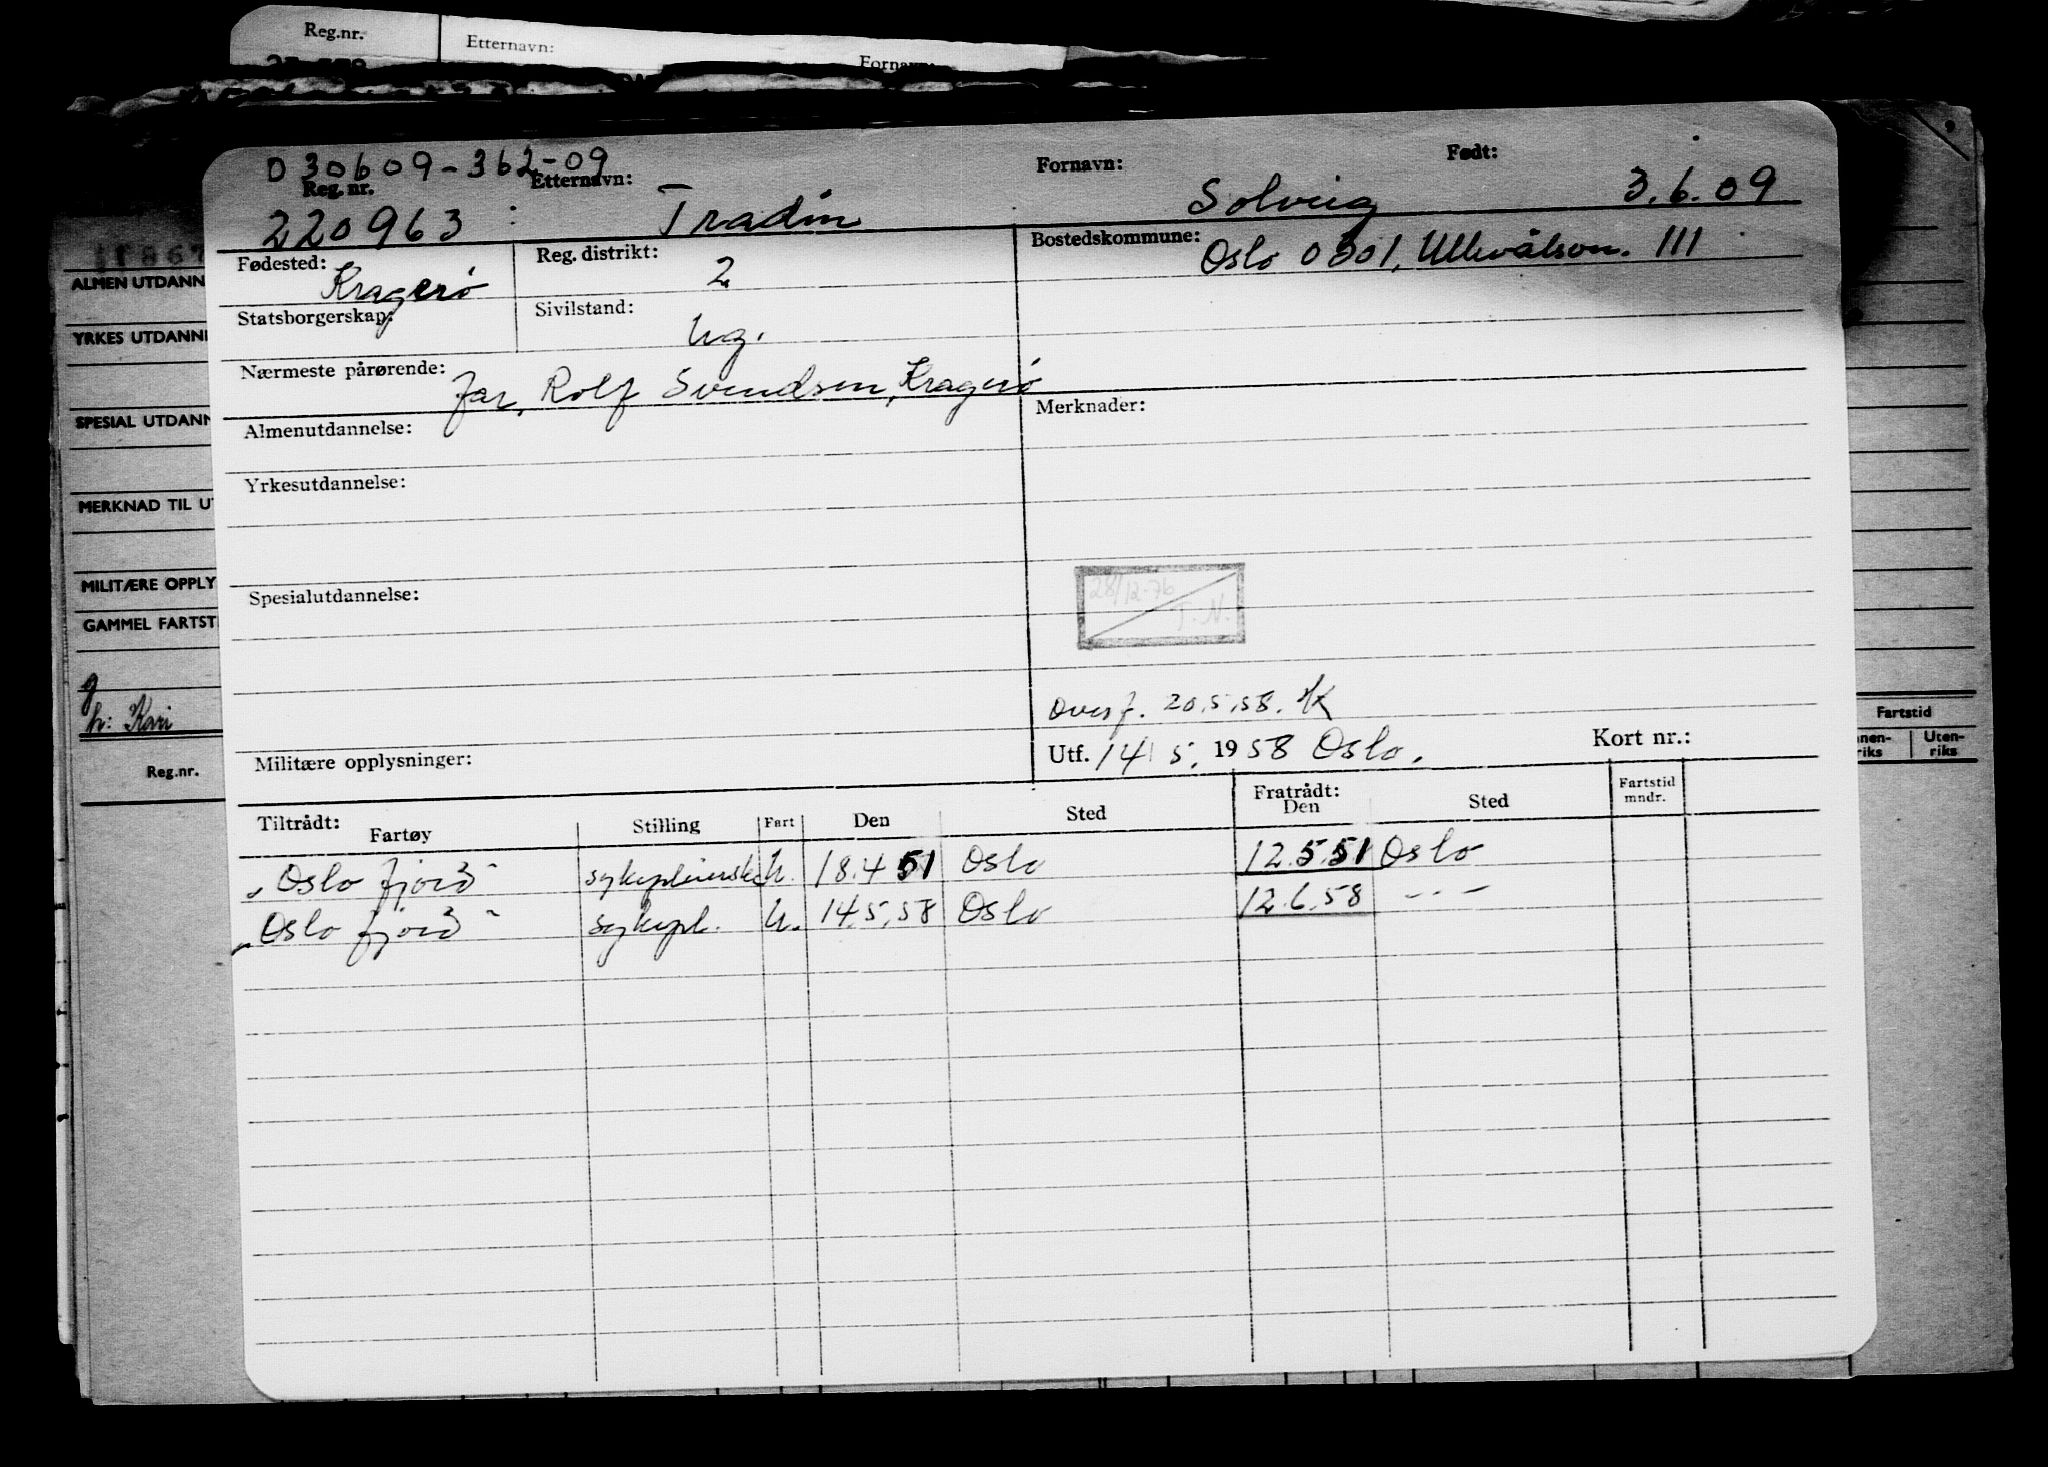 Reg.nr. Etternavn: Fornavn:
D 30609-362-09
Reg. nr. Etternavn: Fornavn: Født:
220963 Tradin Solveig 3.6.09
Fødested: Kragerø Reg. distrikt: 2 Bostedskommune: Oslo 0301, Ullevålsvn. 111
Statsborgerskap: Sivilstand: ug.
Nærmeste pårørende: far, Rolf Svendsen, Kragerø
Merknader:
Almenutdannelse:
Yrkesutdannelse:
28/12-76
T.N.
Spesialutdannelse:
Overf. 20.5.58. HK
Utf. 14/5. 1958 Oslo. Kort nr.:
Militære opplysninger:
Tiltrådt: Fartøy Stilling Fart Den Sted Fratrådt: Den Sted Fartstid mndr.
"Oslofjord" sykepleierske U. 18.4 51 Oslo 12.5.51 Oslo
"Oslofjord" sykepl. U. 14.5.58 Oslo 12.6.58 - " -
ALMEN UTDANN
YRKES UTDANN
SPESIAL UTDANN
MERKNAD TIL U
MILITÆRE OPPLY
GAMMEL FARTST
g
h: Kari
Reg.nr.
Fartstid
nen-
riks
Uten-
riks